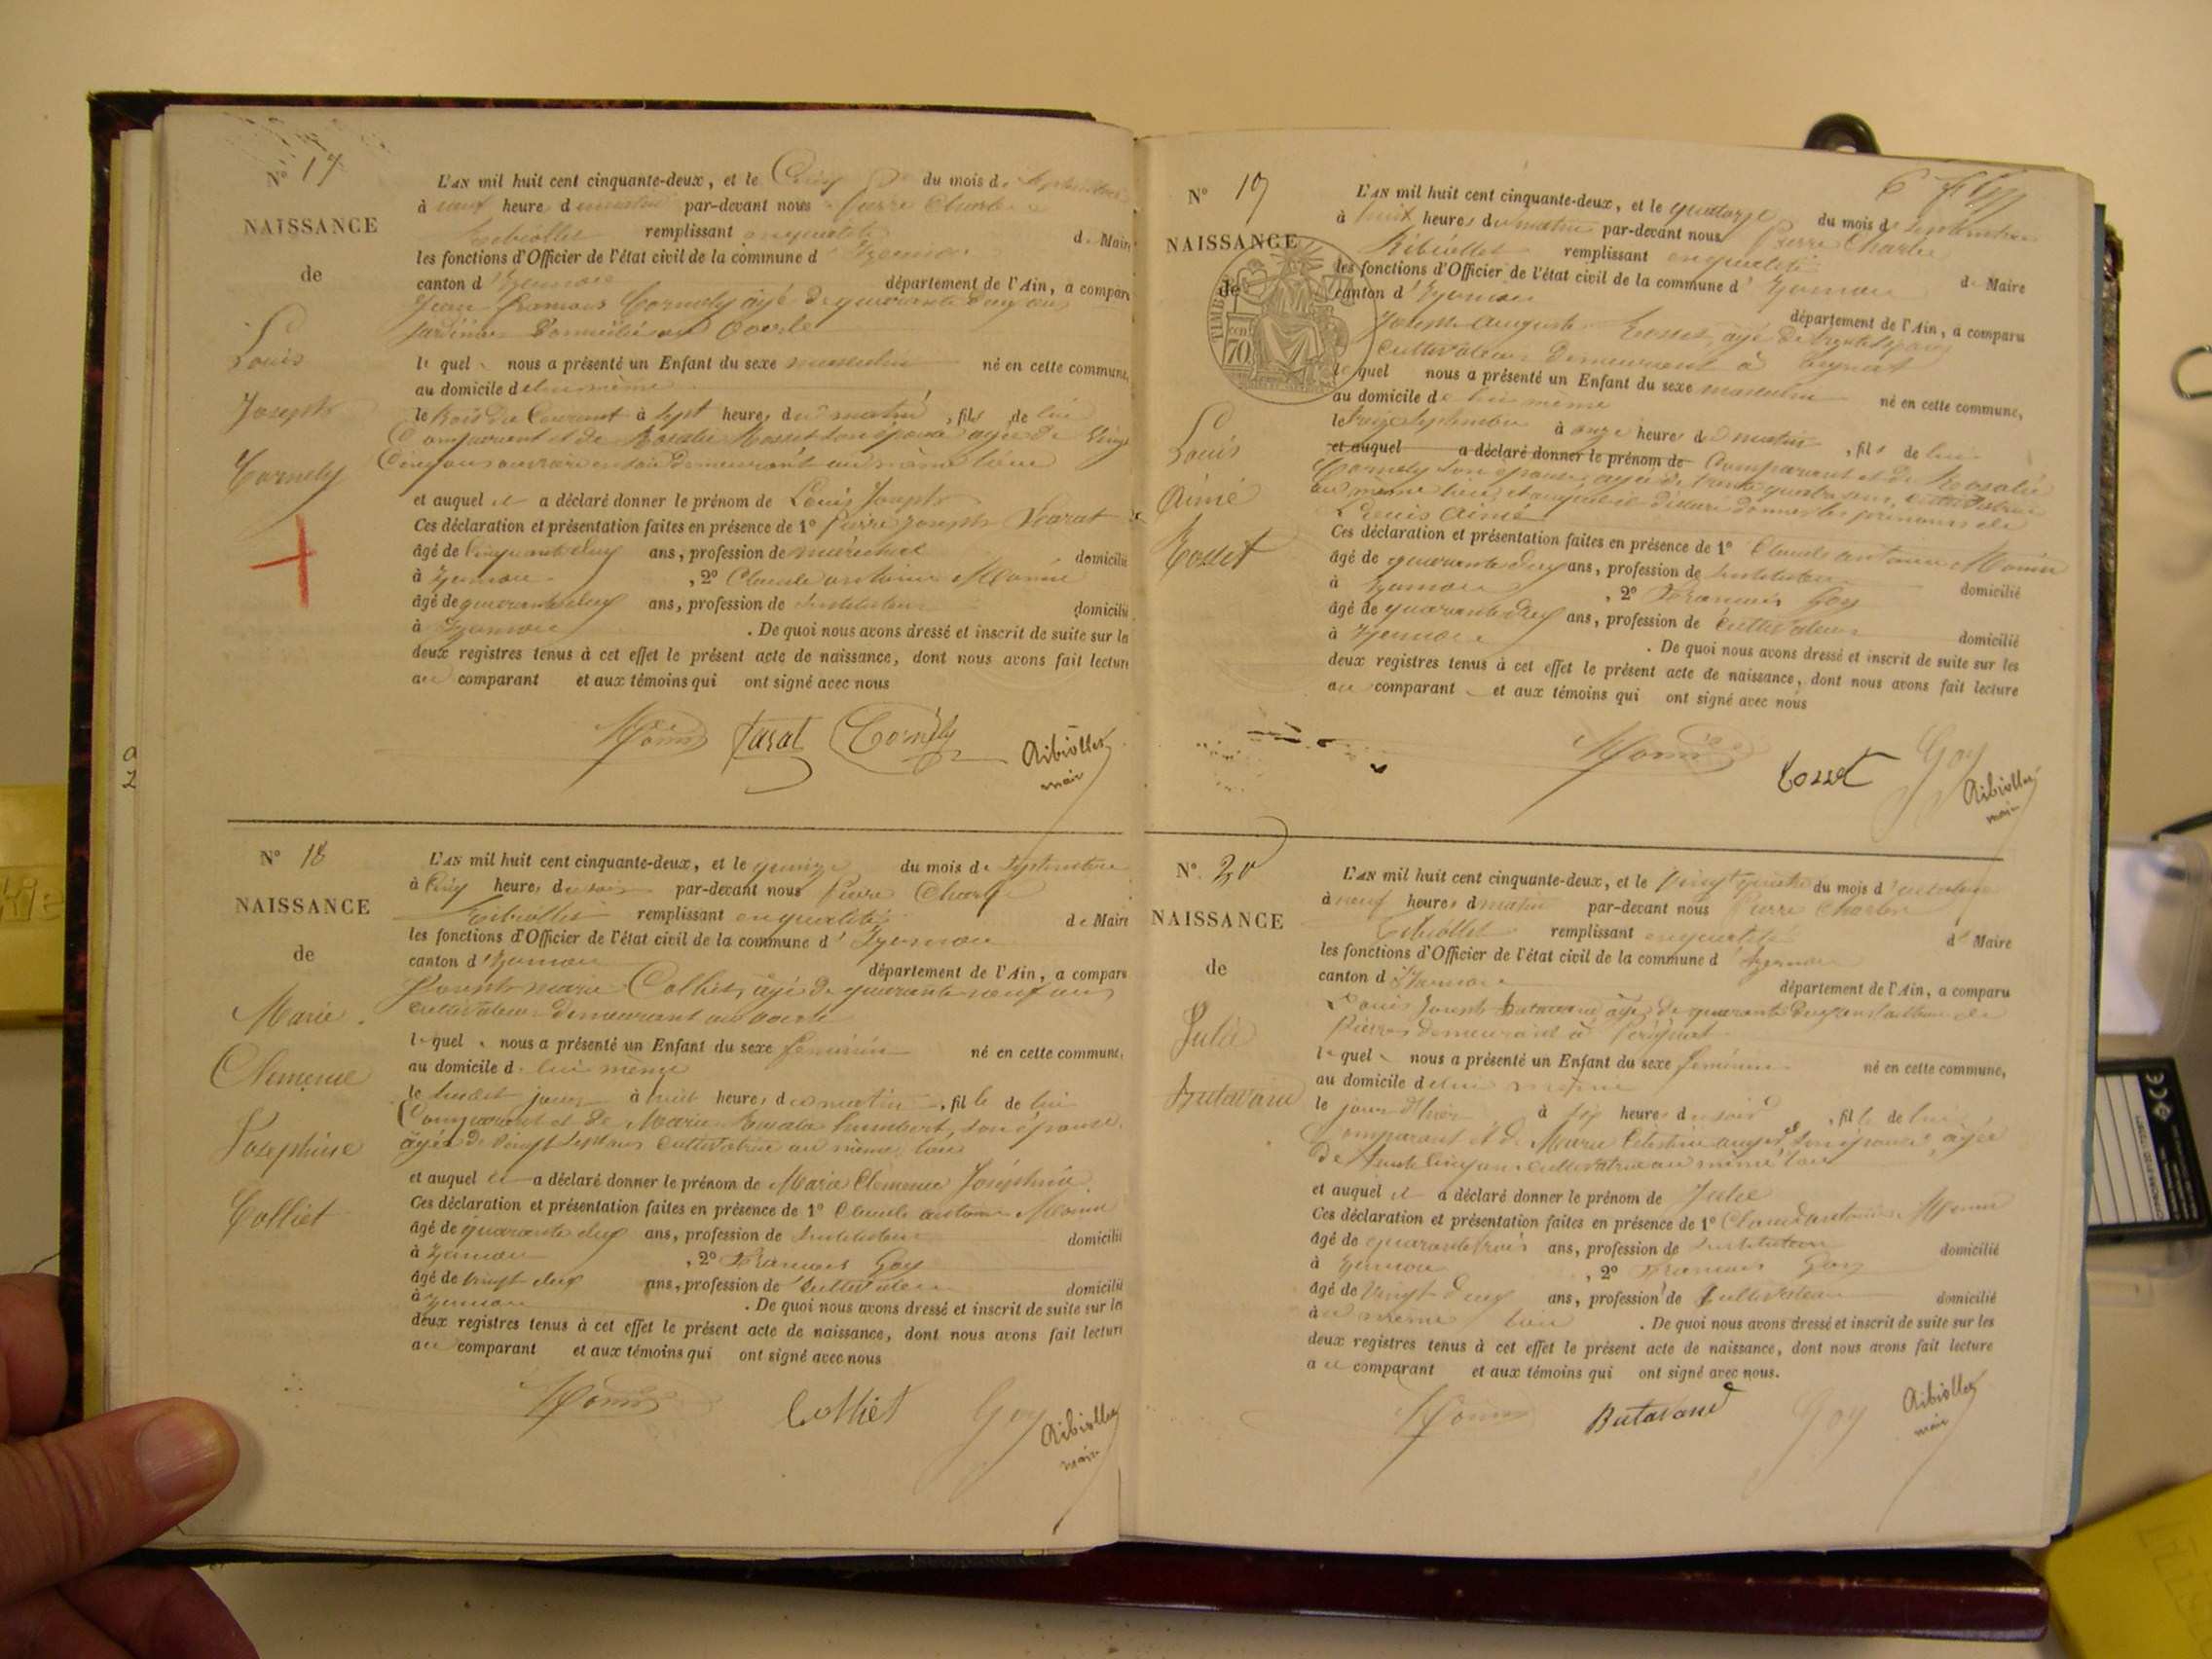 N° 17
NAISSANCE
de
Louis
Joseph
Cornely
L'AN mil huit cent cinquante-deux, et le Cinq du mois de Septembre
à neuf heure du matin par-devant nous Pierre Charles
remplissant en qualité de Maire
les fonctions d'Officier de l'état civil de la commune d'Izernore
canton d'Izernore département de l'Ain, a comparu
Jean François Cornely âgé de quarante cinq ans
jardinier domicilié au Voerle
le quel nous a présenté un Enfant du sexe masculin né en cette commune,
au domicile de lui même
le trois du Courant à sept heures du matin, fils de lui
Comparant et de Rosalie Rosset son épouse âgée de Vingt
Cinq ans ouvrière en soie demeurant au même lieu
et auquel il a déclaré donner le prénom de Louis Joseph
Ces déclaration et présentation faites en présence de 1° Pierre Joseph
âgé de Cinquante deux ans, profession de maréchal domicilié
à Izernore, 2° Claude antoine Monin
âgé de quarante deux ans, profession de Instituteur domicilié
à Izernore. De quoi nous avons dressé et inscrit de suite sur les
deux registres tenus à cet effet le présent acte de naissance, dont nous avons fait lecture
au comparant et aux témoins qui ont signé avec nous
Monin Cornély Ribiollet
maire
N° 18
NAISSANCE
de
Marie
Clemence
Josephine
Colliet
L'AN mil huit cent cinquante-deux, et le quinze du mois de Septembre
à Cinq heures du soir par-devant nous Pierre Charles
remplissant en qualité de Maire
les fonctions d'Officier de l'état civil de la commune d'Izernore
canton d'Izernore département de l'Ain, a comparu
Joseph marie Colliet, âgé de quarante neuf ans
cultivateur demeurant au Voerle
le quel nous a présenté un Enfant du sexe feminin né en cette commune,
au domicile de lui même
le susdit jour à huit heures du matin, fille de lui
Comparant et de Marie humbert, son épouse
âgée de Vingt sept ans cultivatrice au même lieu
et auquel il a déclaré donner le prénom de Marie Clémence Joséphine
Ces déclaration et présentation faites en présence de 1° Claude antoine Monin
âgé de quarante deux ans, profession de Instituteur domicilié
à Izernore, 2° François Goy
âgé de vingt deux ans, profession de Cultivateur domicilié
à Izernore. De quoi nous avons dressé et inscrit de suite sur les
deux registres tenus à cet effet le présent acte de naissance, dont nous avons fait lecture
au comparant et aux témoins qui ont signé avec nous
Monin Colliet Goy Ribiollet
maire
N° 19
NAISSANCE
de
TIMBRE
70
Louis
Aimé
Rosset
L'AN mil huit cent cinquante-deux, et le quatorze du mois de septembre
à huit heures du matin par-devant nous Pierre Charles
Ribiollet remplissant en qualité de Maire
les fonctions d'Officier de l'état civil de la commune d'Izernore
canton d'Izernore département de l'Ain, a comparu
Joseph Auguste Rosset, âgé de
Cultivateur demeurant à Ceyssiat
le quel nous a présenté un Enfant du sexe masculin né en cette commune,
au domicile de lui même
le treize Septembre à onze heures du matin, fils de lui
et auquel a déclaré donner le prénom de Comparant et de Rosalie
Cornely son épouse, âgée de trente quatre ans, cultivatrice
au même lieu, et auquel il a déclaré donner les prénoms de
Louis Aimé
Ces déclaration et présentation faites en présence de 1° Claude antoine Monin
âgé de quarante deux ans, profession de Instituteur domicilié
à Izernore, 2° François Goy
âgé de quarante deux ans, profession de Cultivateur domicilié
à Izernore. De quoi nous avons dressé et inscrit de suite sur les
deux registres tenus à cet effet le présent acte de naissance, dont nous avons fait lecture
au comparant et aux témoins qui ont signé avec nous
Monin Rosset Goy Ribiollet
maire
N° 20
NAISSANCE
de
Julie
Butavand
L'AN mil huit cent cinquante-deux, et le vingt quatre du mois d'octobre
à neuf heures du matin par-devant nous Pierre Charles
Ribiollet remplissant en qualité de Maire
les fonctions d'Officier de l'état civil de la commune d'Izernore
canton d'Izernore département de l'Ain, a comparu
Louis Joseph Butavand âgé de quarante deux ans tailleur de
Pierres demeurant à
le quel nous a présenté un Enfant du sexe féminin né en cette commune,
au domicile de lui même
le jour d'hier à six heures du soir, fille de lui
Comparant et de Marie Celestine son épouse, âgée
de trente Cinq ans cultivatrice au même lieu
et auquel il a déclaré donner le prénom de Julie
Ces déclaration et présentation faites en présence de 1° Claude antoine Monin
âgé de quarante trois ans, profession de Instituteur domicilié
à Izernore, 2° François Goy
âgé de Vingt deux ans, profession de Cultivateur domicilié
au même lieu. De quoi nous avons dressé et inscrit de suite sur les
deux registres tenus à cet effet le présent acte de naissance, dont nous avons fait lecture
au comparant et aux témoins qui ont signé avec nous.
Monin Butavand Goy Ribiollet
maire